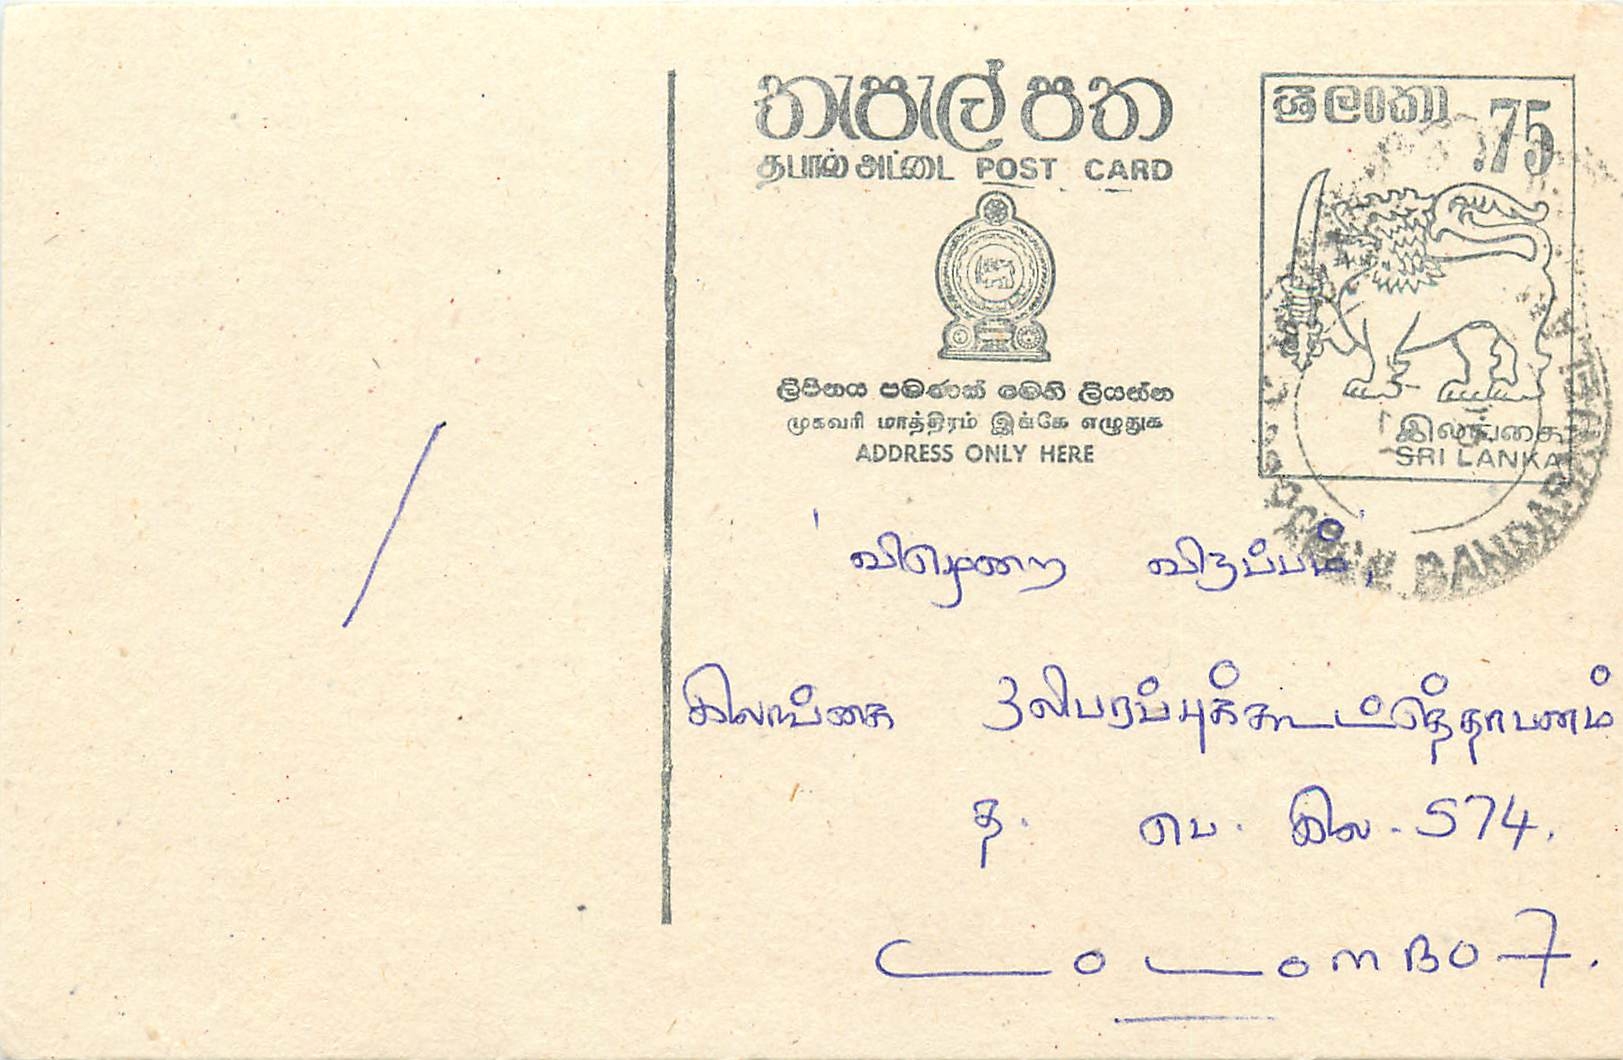 තැපැල් පත
தபால் அட்டை POST CARD
ලිපිනය පමණක් මෙහි ලියන්න
முகவரி மாத்திரம் இங்கே எழுதுக
ADDRESS ONLY HERE
ශ්‍රී ලංකා .75
இலங்கை
SRI LANKA
BANDARA
விருப்பம்,
இலங்கை ஒலிபரப்புக்கூட்டுத்தாபனம்
த. பெ. இல. 574.
COLOMBO 7.